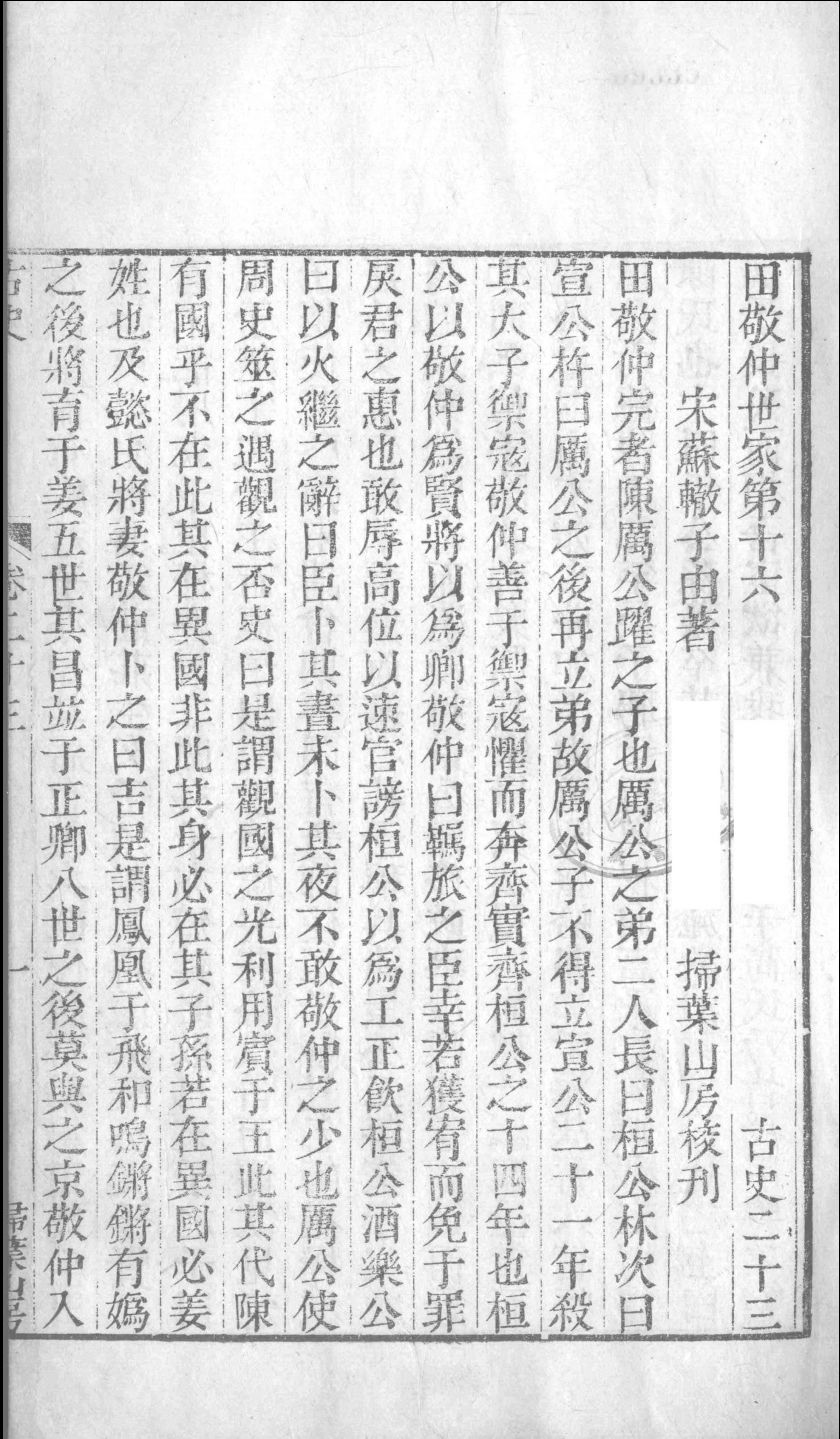 田敬仲世家第十六 古史二十三
宋蘇轍子由著 掃葉山房校刊
田敬仲完者陳厲公躍之子也厲公之弟二人長曰桓公林次曰
宣公杵曰厲公之後再立弟故厲公子不得立宣公二十一年殺
其大子禦寇敬仲善于禦寇懼而奔齊實齊桓公之十四年也桓
公以敬仲為賢將以為卿敬仲曰羈旅之臣幸若獲宥而免于罪
戾君之惠也敢辱高位以速官謗桓公以為工正飲桓公酒樂公
曰以火繼之辭曰臣卜其晝未卜其夜不敢敬仲之少也厲公使
周史筮之遇觀之否史曰是謂觀國之光利用賓于王此其代陳
有國乎不在此其在異國非此其身必在其子孫若在異國必姜
姓也及懿氏將妻敬仲卜之曰吉是謂鳳凰于飛和鳴鏘鏘有媯
之後將育于姜五世其昌並于正卿八世之後莫與之京敬仲入
古史 卷二十三 一 掃葉山房